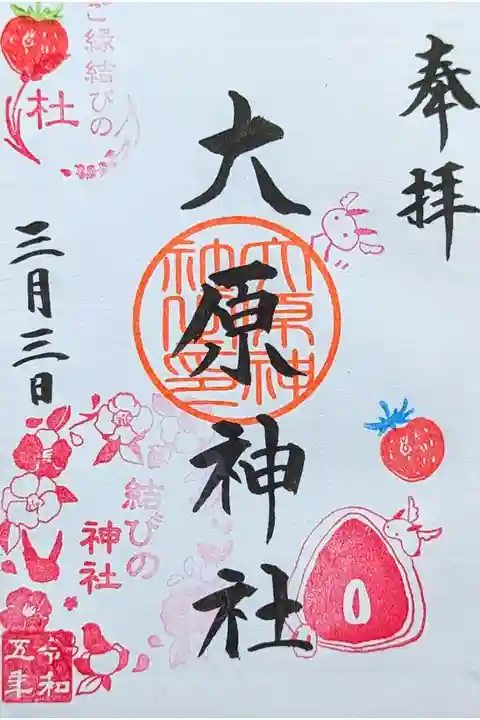 奉拝
大原神社
大原神社印
三月三日
ご縁結びの
杜
結びの
神社
令和
五年